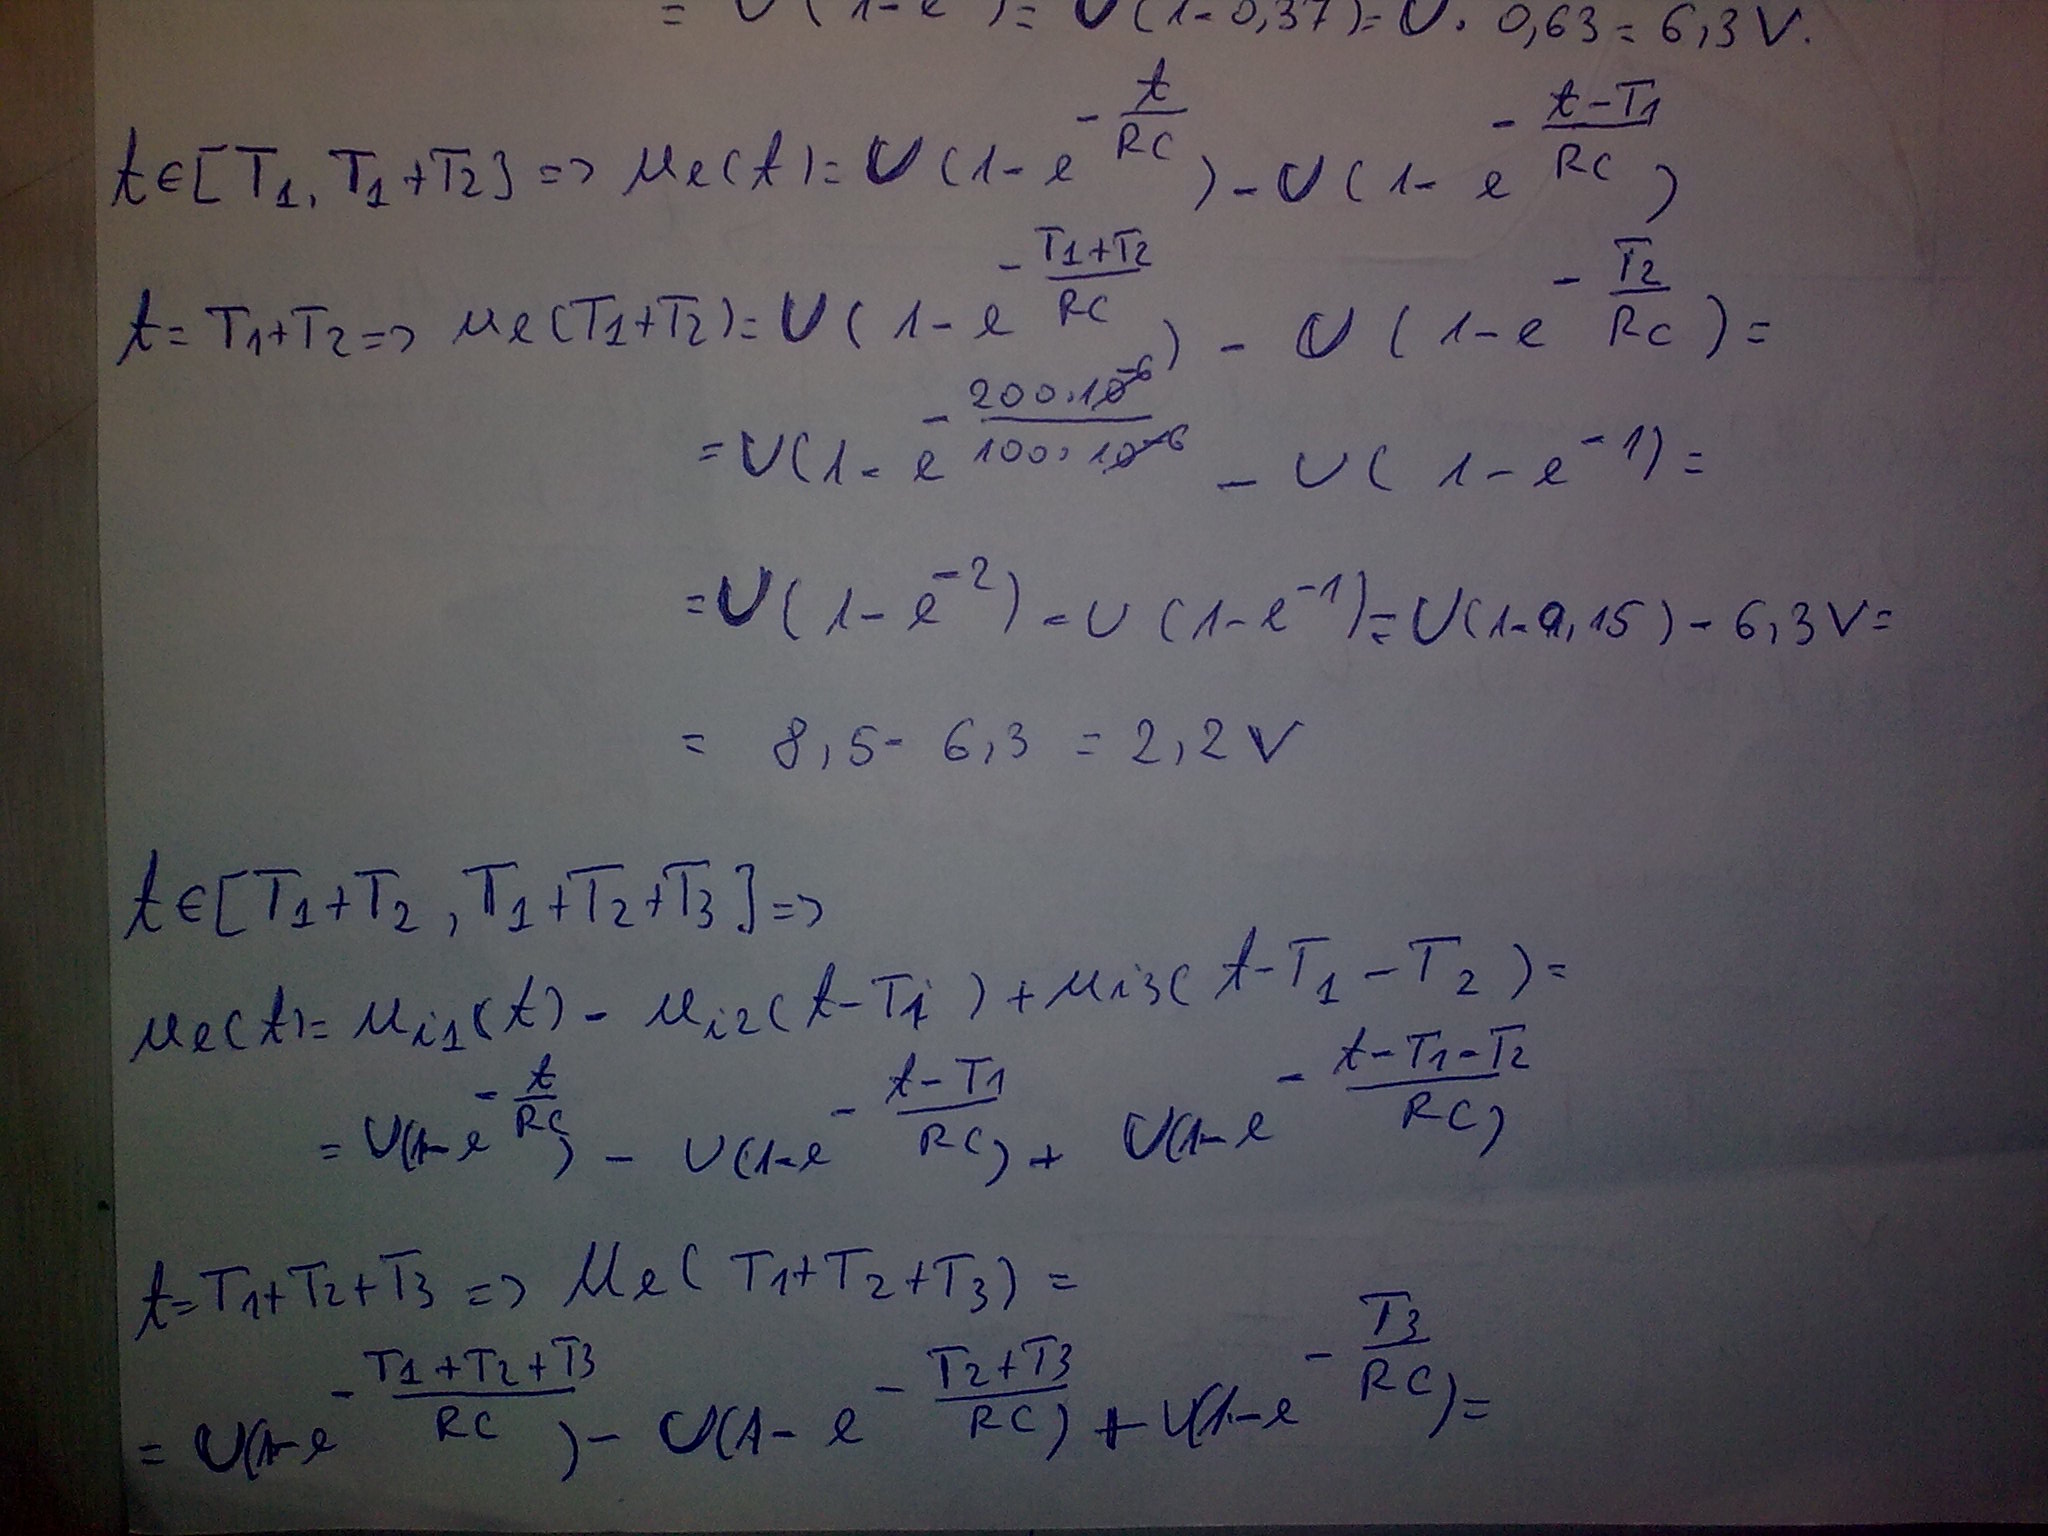 = U(1-e ) = U(1-0,37) = U. 0,63 = 6,3 V.
t∈[T1, T1+T2] => ue(t) = U(1-e^-t/RC) - U(1-e^-(t-T1)/RC)
t = T1+T2 => ue(T1+T2) = U(1-e^-(T1+T2)/RC) - U(1-e^-T2/RC) =
= U(1-e^-200.10^-6/100.10^-6 - U(1-e^-1) =
= U(1-e^-2) - U(1-e^-1) = U(1-0,15) - 6,3 V =
= 8,5 - 6,3 = 2,2 V
t∈[T1+T2, T1+T2+T3] =>
ue(t) = ui1(t) - ui2(t-T1) + ui3(t-T1-T2) =
= U(1-e^-t/RC) - U(1-e^-(t-T1)/RC) + U(1-e^-(t-T1-T2)/RC)
t = T1+T2+T3 => ue(T1+T2+T3) =
= U(1-e^-(T1+T2+T3)/RC) - U(1-e^-(T2+T3)/RC) + U(1-e^-T3/RC) =